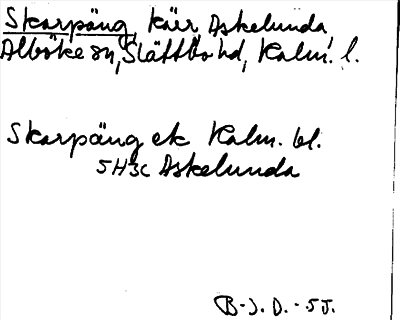 Skarpäng, kärr, Askelunda,
Alböke sn, Slättbo hd, Kalm. l.
Skarpäng ek Kalm. bl.
5H3c Askelunda
B-J. D. - 55.